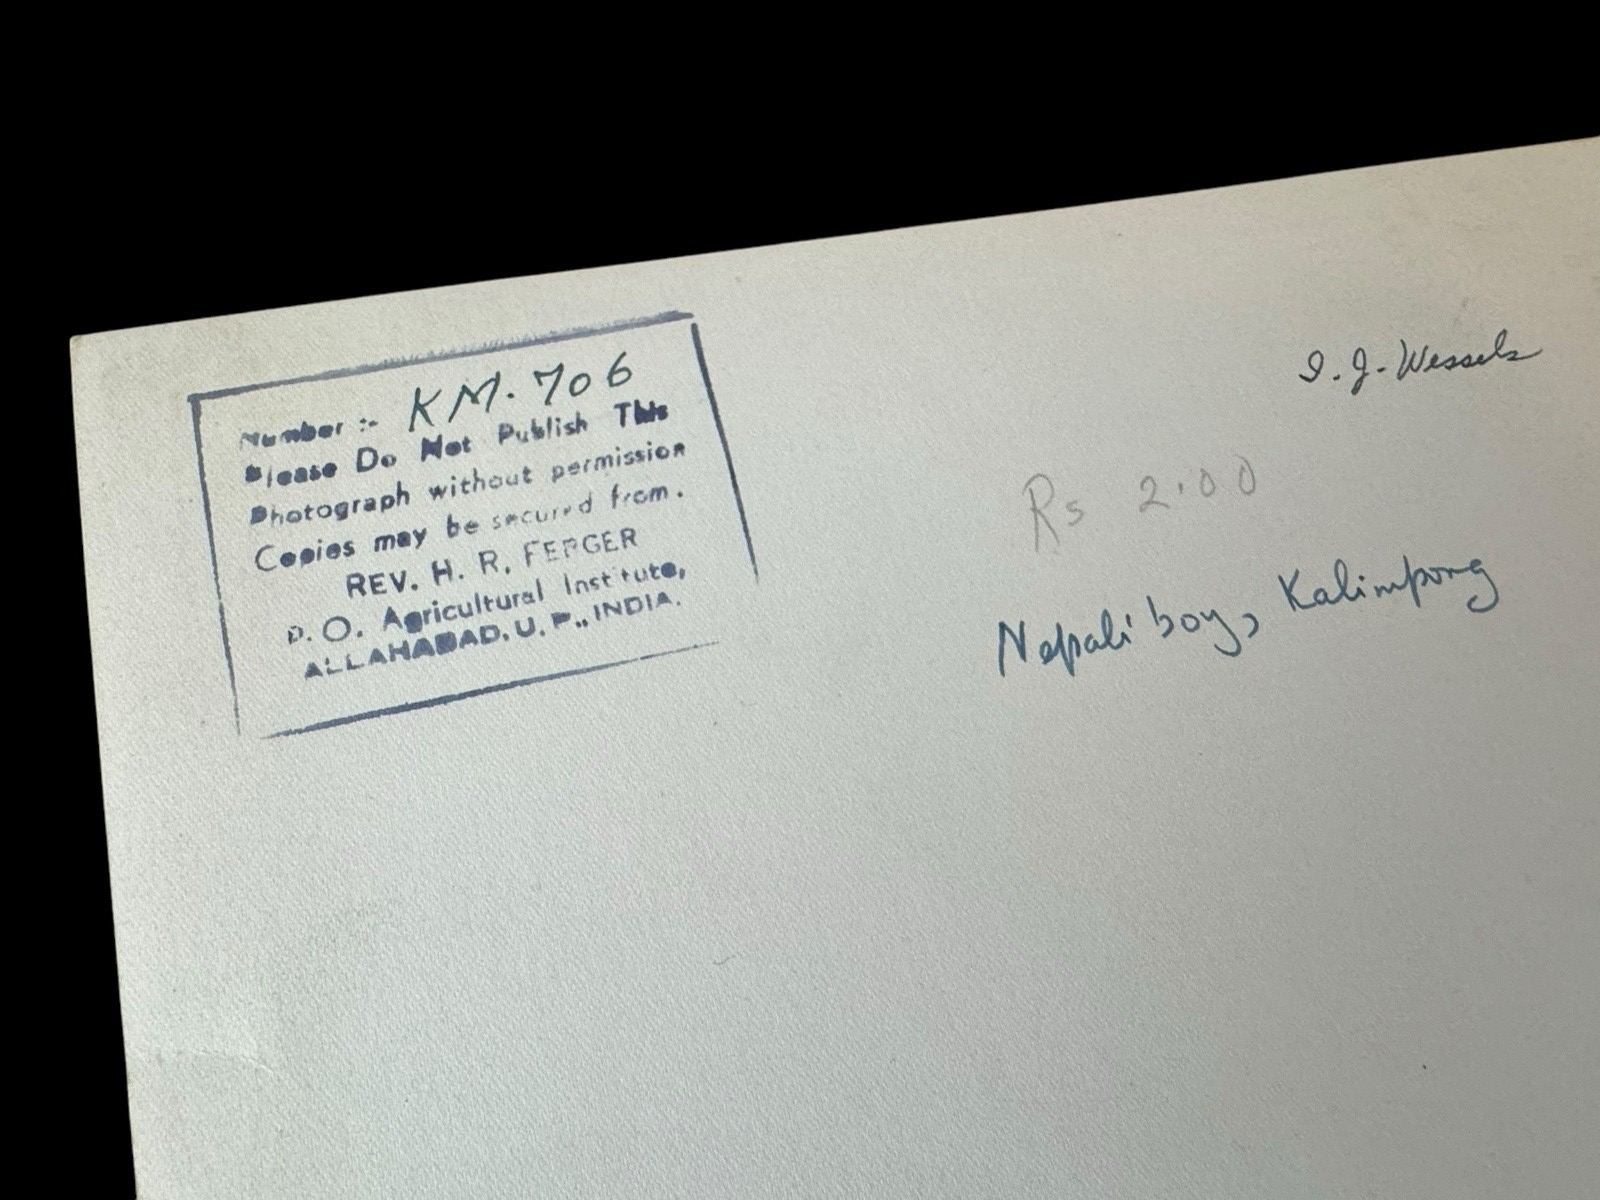 Number :- KM. 706
Please Do Not Publish This
Photograph without permission
Copies may be secured from.
REV. H. R. FERGER
P. O. Agricultural Institute,
ALLAHABAD. U. P., INDIA.
I. J. Wessels
Rs 2.00
Nepali boy, Kalimpong